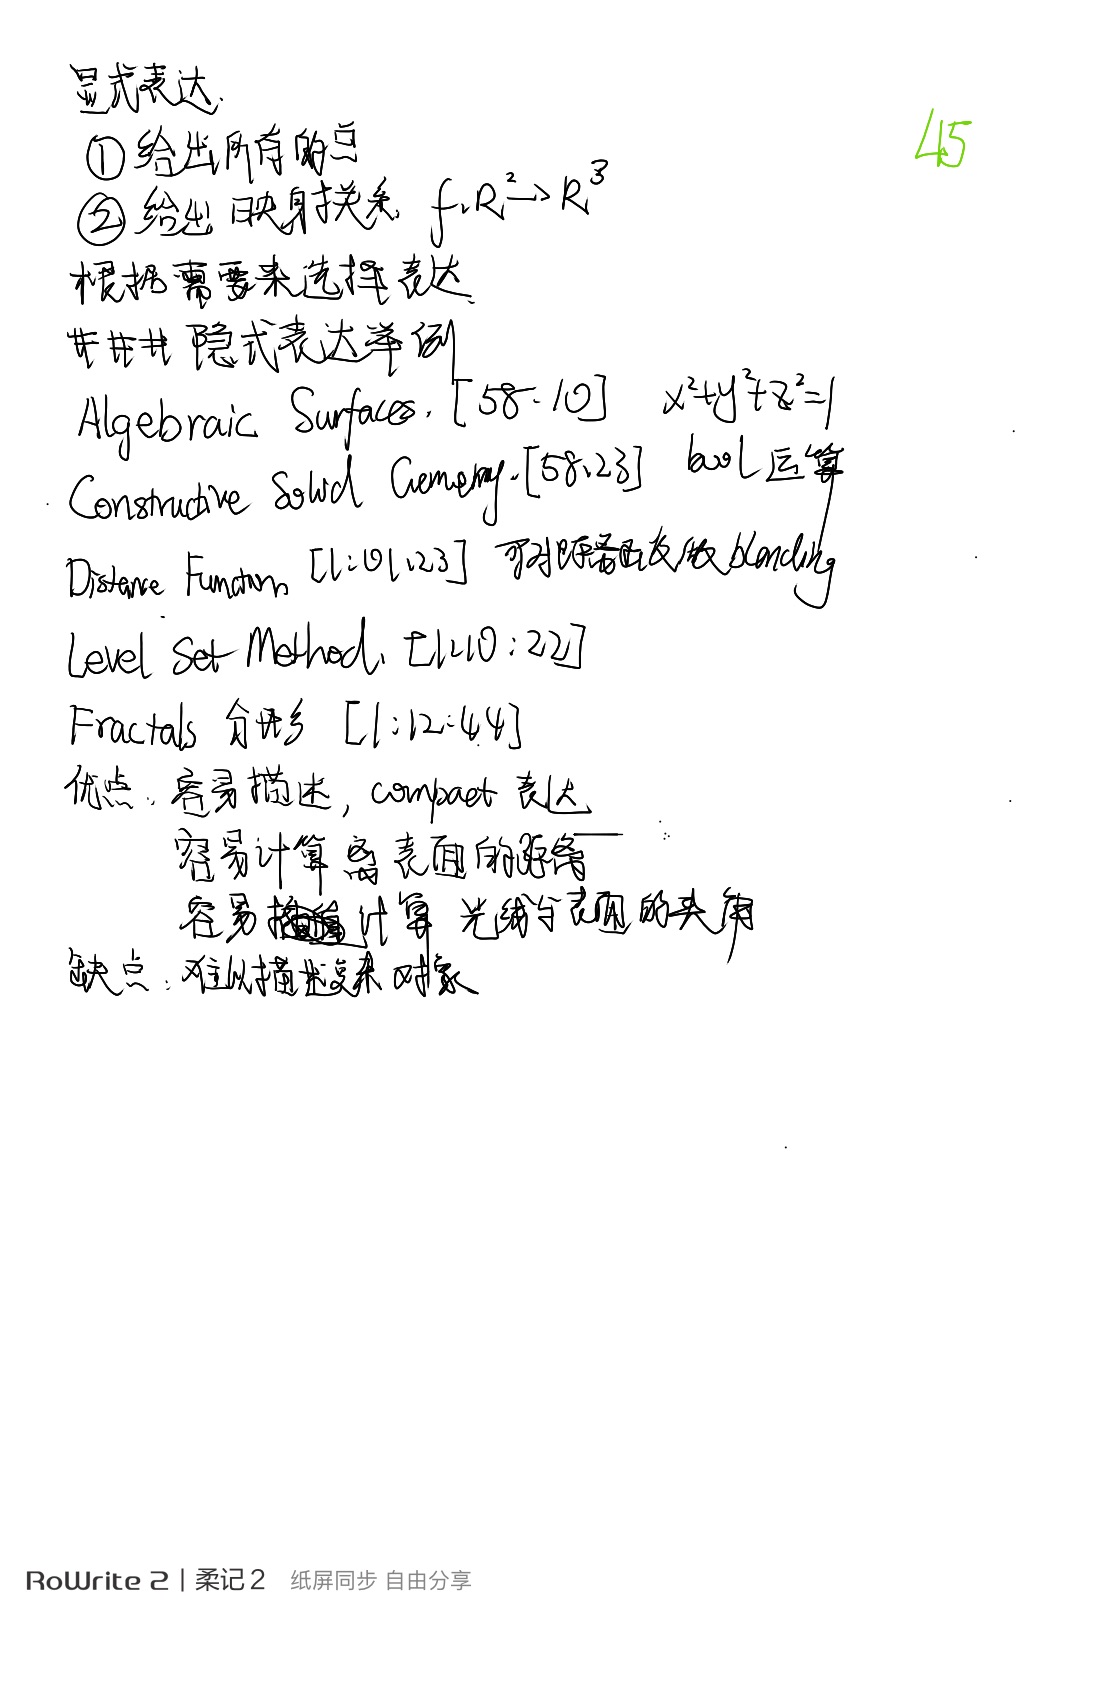 显式表达.
45
① 给出所有的点
② 给出映射关系 f: R²→R³
根据需要来选择表达
### 隐式表达举例
Algebraic Surfaces. [58:10] x²+y²+z²=1
Constructive Solid Gemenry. [58:23] bool运算
Distance Functions [1:01:23] 可对距离函数做blending
Level Set Method. [1:10:22]
Fractals 分形 [1:12:44]
优点: 容易描述, compact 表达
容易计算离表面的距离
容易计算 光线与表面的夹角
缺点: 难以描述复杂对象
RoWrite 2 | 柔记 2 纸屏同步 自由分享